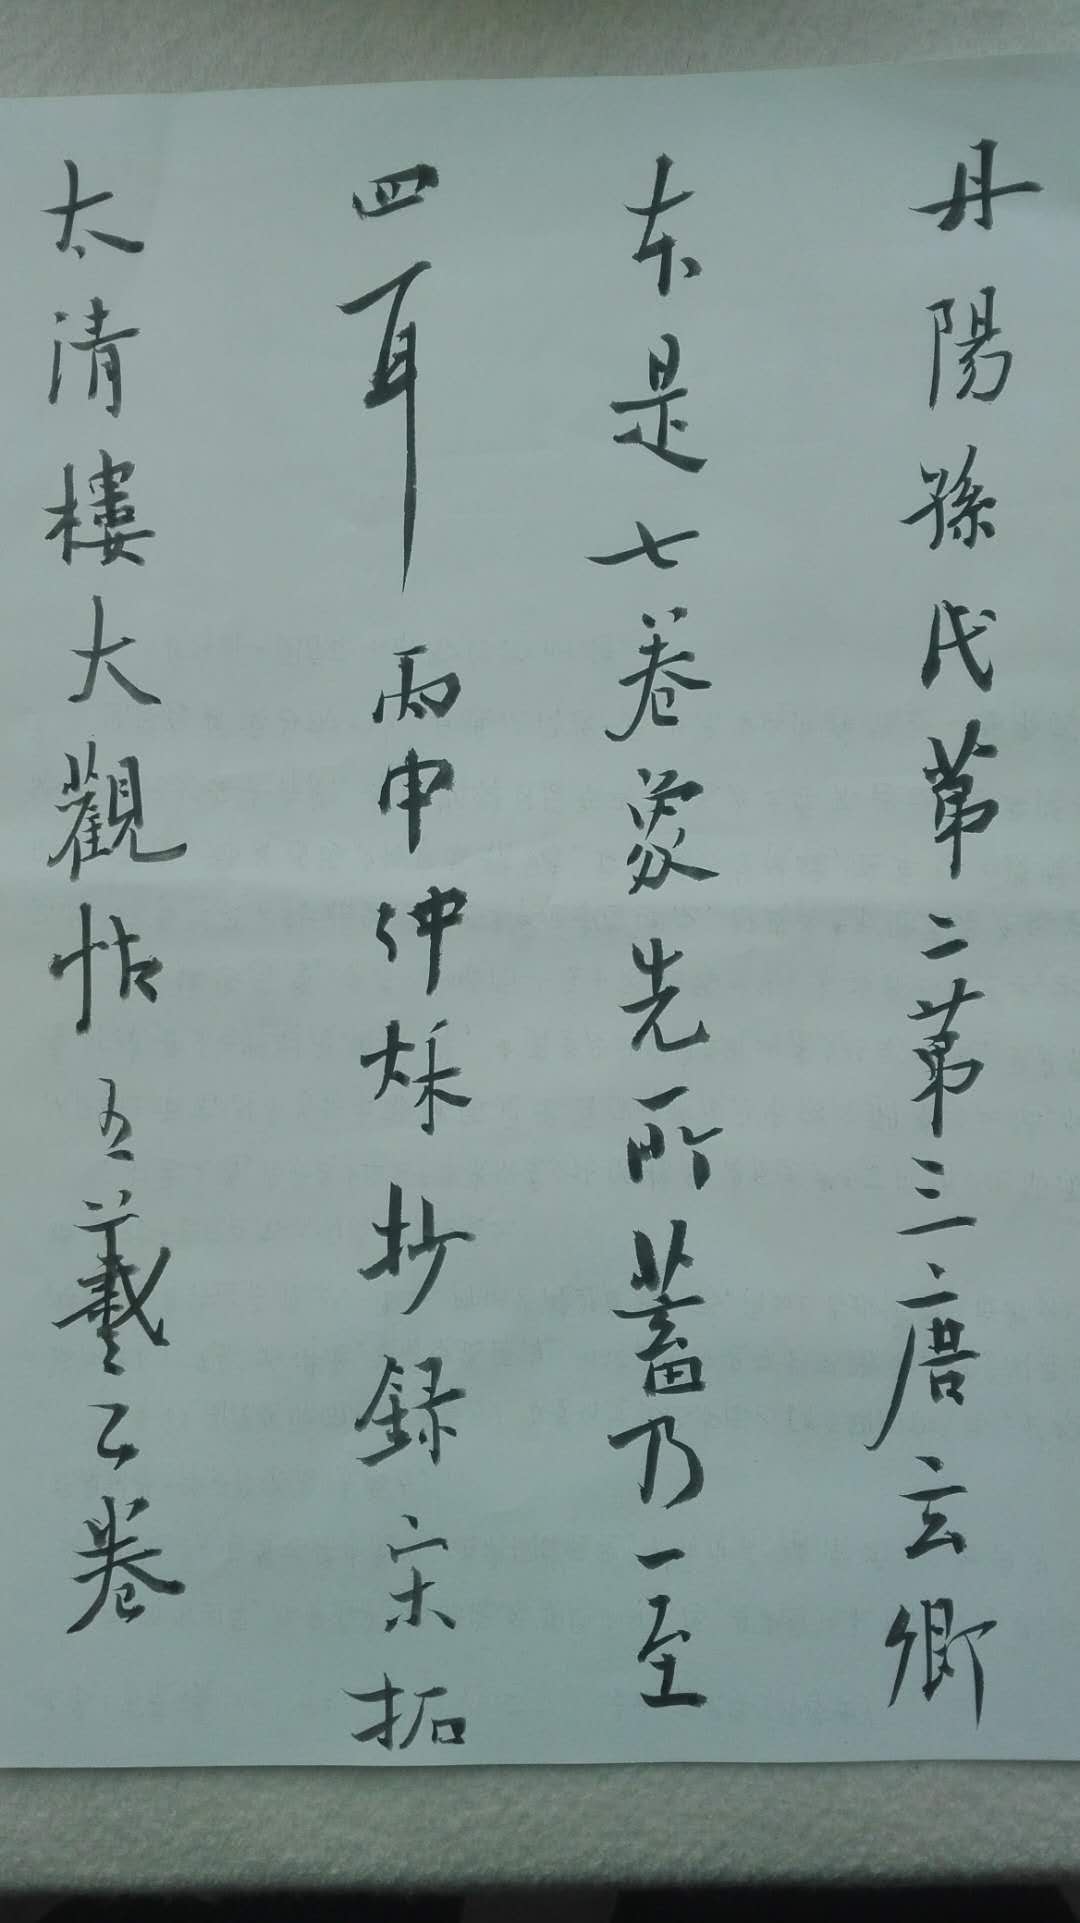 丹陽孫氏第二第三唐玄卿
本是七卷象先所蓄乃一至
四耳丙申仲秋抄録宋拓
太清樓大觀帖王羲之卷